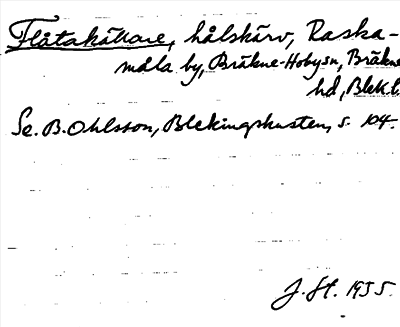 Flåtakällare, hålskärv, Raska-
måla by, Bräkne-Hobysn, Bräkne
hd, Blek.l.
Se. B. Ohlsson, Blekingskusten, s. 104.
J. St. 1955.